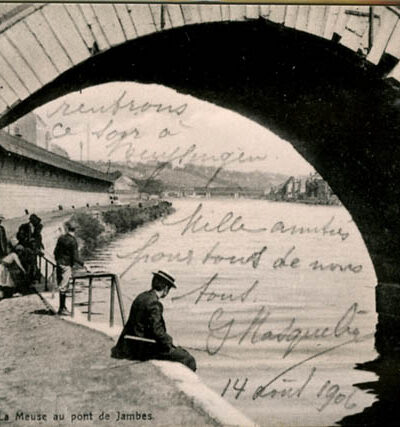 rentrons
ce soir à
Mille amitiés
pour tout de nous
tous.
14 août 1906
La Meuse au pont de Jambes.